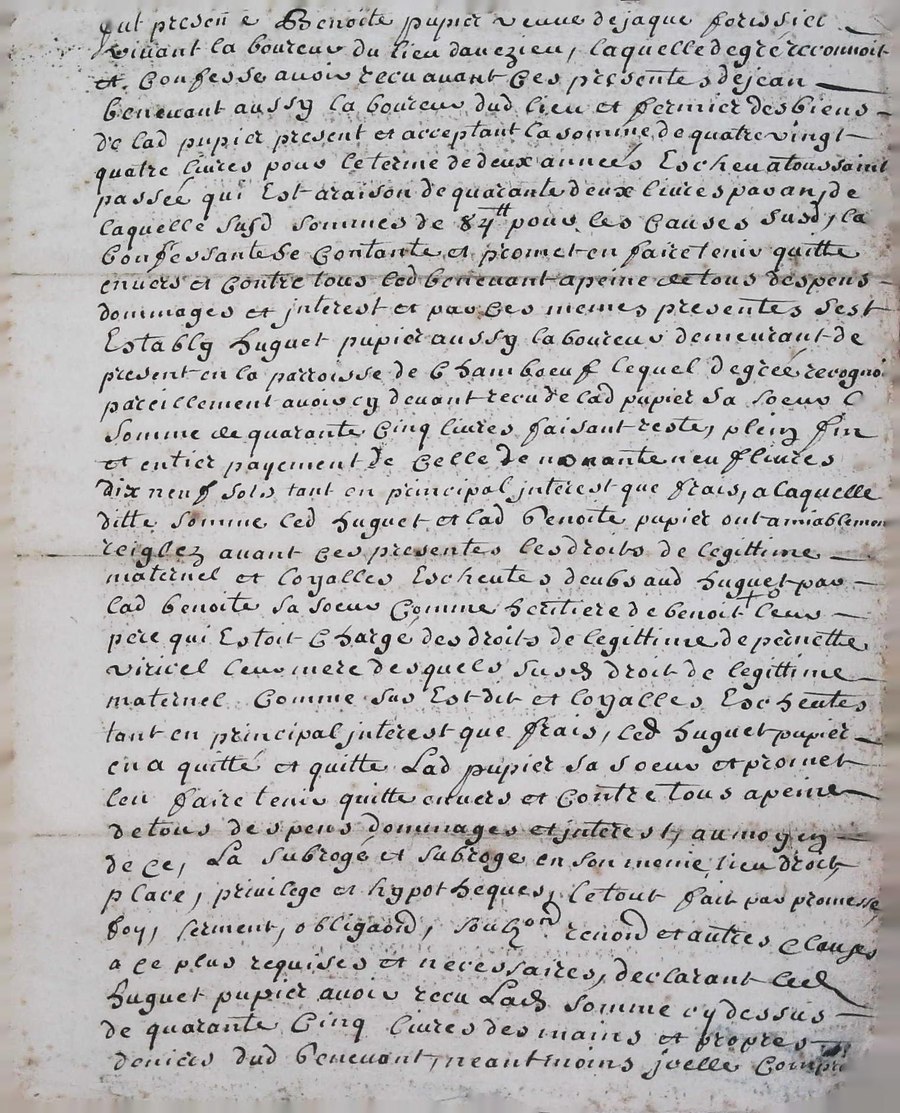 fut presente Benoite pupier veuve de jaque forissier
vivant laboureur du lieu davezieu, laquelle de gré reconnoit
et confesse avoir recu avant ces presentes de jean
benevant aussy laboureur dud lieu et fermier des biens
de lad pupier present et acceptant la somme de quatre vingt
quatre livres pour le terme de deux années Escheu a toussaint
passée qui Est a raison de quarante deux livres par an, de
laquelle susd sommes de 84tt pour les causes susd, la
Confessante se contante et promet en faire tenir quitte
envers et contre tous led benevant a peine de tous despens
dommages et jnterest et par ces memes presentes s'est
Estably huguet pupier aussy laboureur demeurant de
present en la parroisse de Chamboeuf lequel de gréé recognoi
pareillement avoir cy devant recu de lad pupier sa soeur l
somme de quarante cinq livres faisant reste, plein fin
et entier payement de celle de nonante neuf livres
dix neuf sols tant en principal jnterest que frais, a laquelle
ditte somme led huguet et lad benoite pupier ont amiablemen
reiglez avant ces presentes les droits de legittime
maternel et loyalles Escheutes deubs aud huguet par
lad benoite sa soeur comme heritiere de benoit leur
pere qui Estoit chargé des droits de legittime de pernette
viricel leur mere desquels susd droit de legittime
maternel comme sus Est dit et loyalles Escheutes
tant en principal jnterest que frais, led huguet pupier
en a quitté et quitte Lad pupier sa soeur et promet
l'en faire tenir quitte envers et contre tous a peine
de tous despens dommages et jnterest, au moyen
de ce, La subrogé et subroge en son meme lieu droit
place, privilege et hypotheques, le tout fait par promesse
foy, serment, obligaond, soubzon renond et autres clauses
a ce plus requises et necessaires, declarant led
huguet pupier avoir recu Lad somme cy dessus
de quarante cinq livres des mains et propres
deniers dud benevant, neantmoins jcelle compri